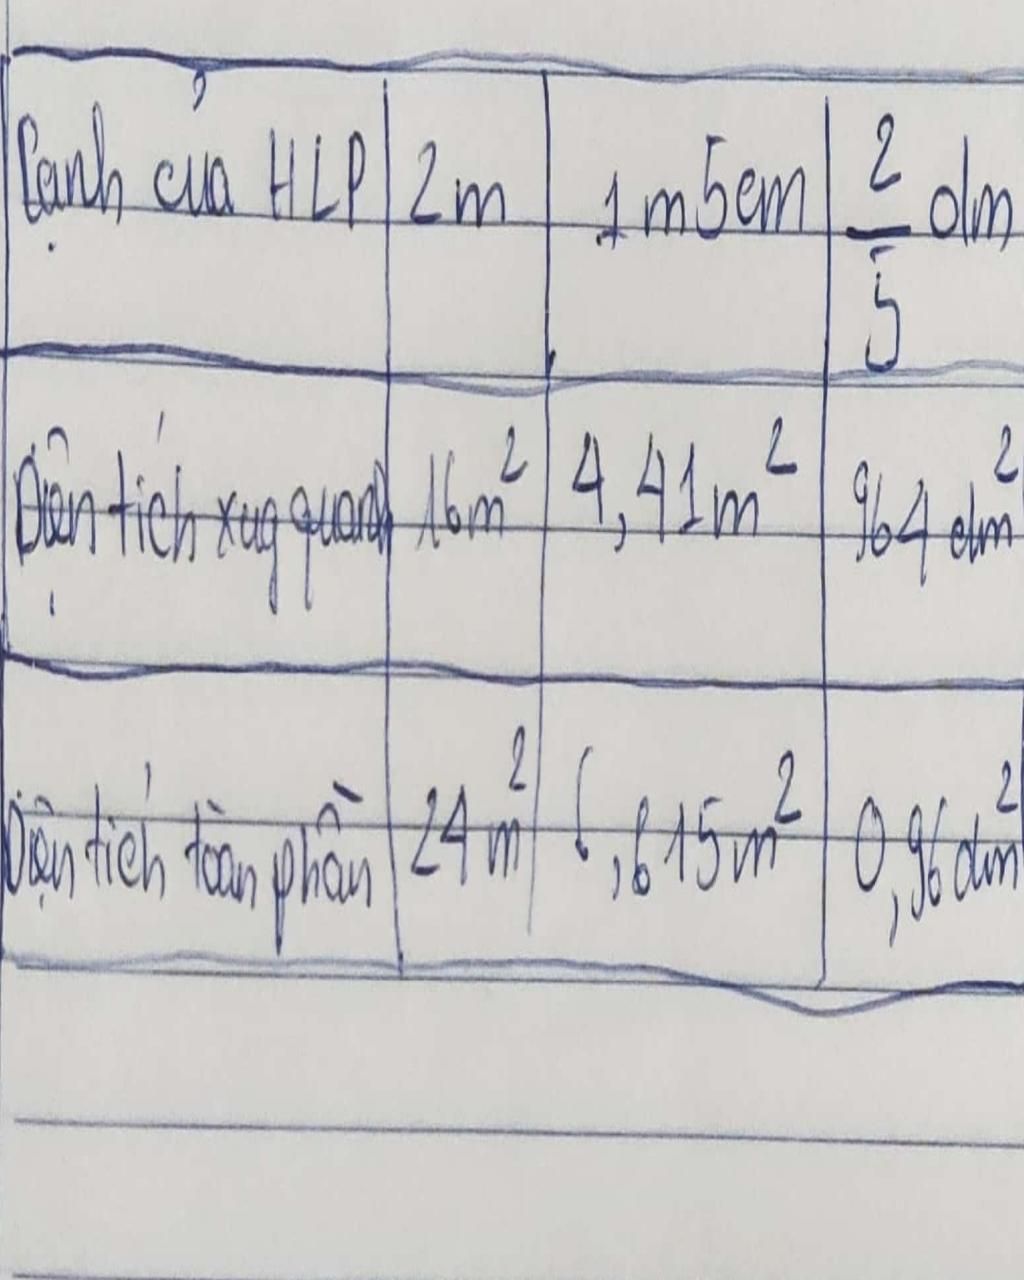 Cạnh của HLP 2m 1m5cm 2/5 dm
Diện tích xug quanh 16m² 4,41m² 964 dm²
Diện tích toàn phần 24m² 6,615m² 0,96dm²